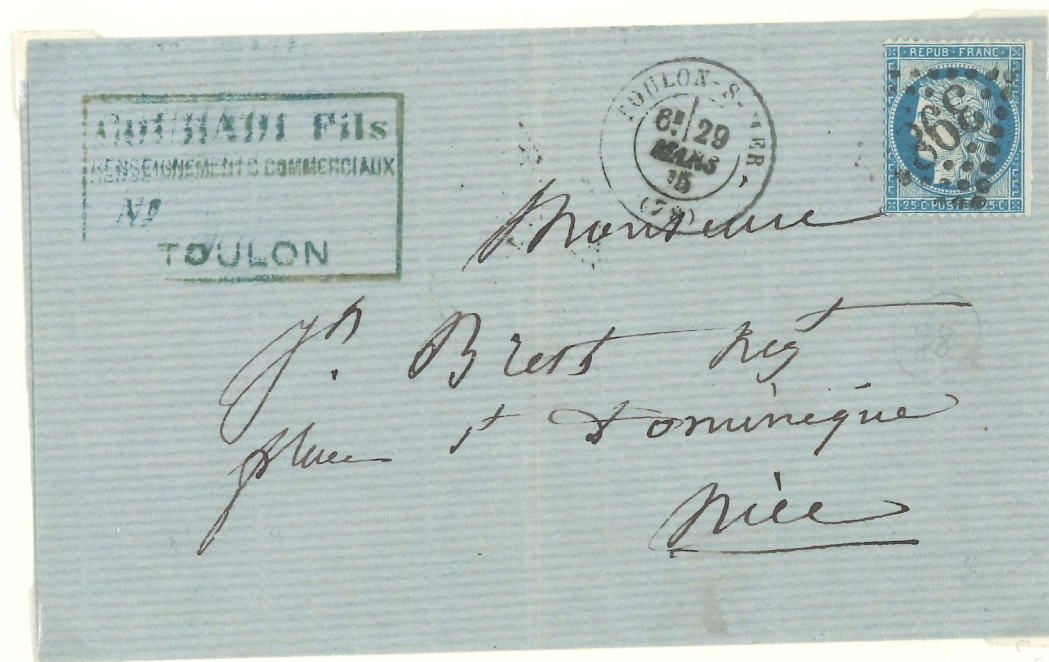 Fils
RENSEIGNEMENTS COMMERCIAUX
TOULON
TOULON-S-MER
6E 29
MARS
75
(78)
REPUB·FRANC·
25·C·POSTES·25·C
Monsieur
Jh. Brest Nég
place St Dominique
Nice
18